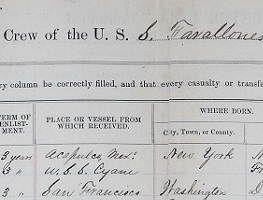 Crew of the U. S. S. Farallones
ry column be correctly filled, and that every casualty or transfe
TERM OF ENLIST- MENT. PLACE OR VESSEL FROM WHICH RECEIVED. WHERE BORN.
City, Town, or County.
3 years Acapulco, Mex. New York
3 " U.S.S. Cyane
3 " San Francisco Washington D